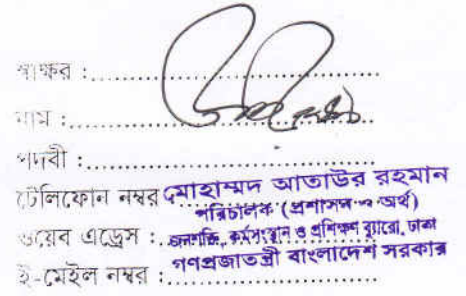 স্বাক্ষর :
নাম :
পদবী :
টেলিফোন নম্বর
মোহাম্মদ আতাউর রহমান
পরিচালক (প্রশাসন ও অর্থ)
ওয়েব এড্রেস :
জনশক্তি, কর্মসংস্থান ও প্রশিক্ষণ ব্যুরো, ঢাকা
গণপ্রজাতন্ত্রী বাংলাদেশ সরকার
ই-মেইল নম্বর :